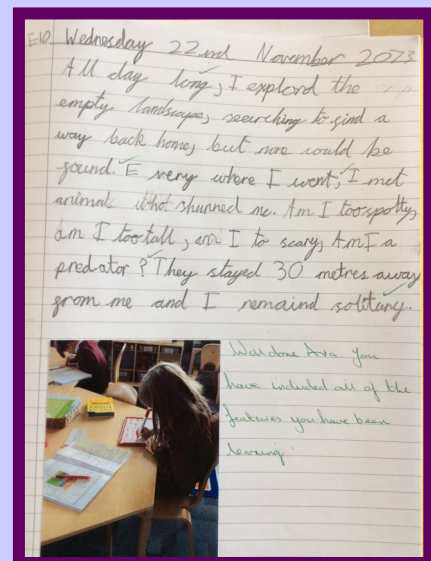 E10 Wednesday 22nd November 2023
All day long, I explord the
empty landscape, searching to find a
way back home, but none could be
found. E very where I went, I met
animals that shunned me. Am I too spotty,
am I too tall, am I to scary, Am I a
predator? They stayed 30 metres away
from me and I remaind solitary.
Well done Ava. You
have included all of the
features you have been
learning.